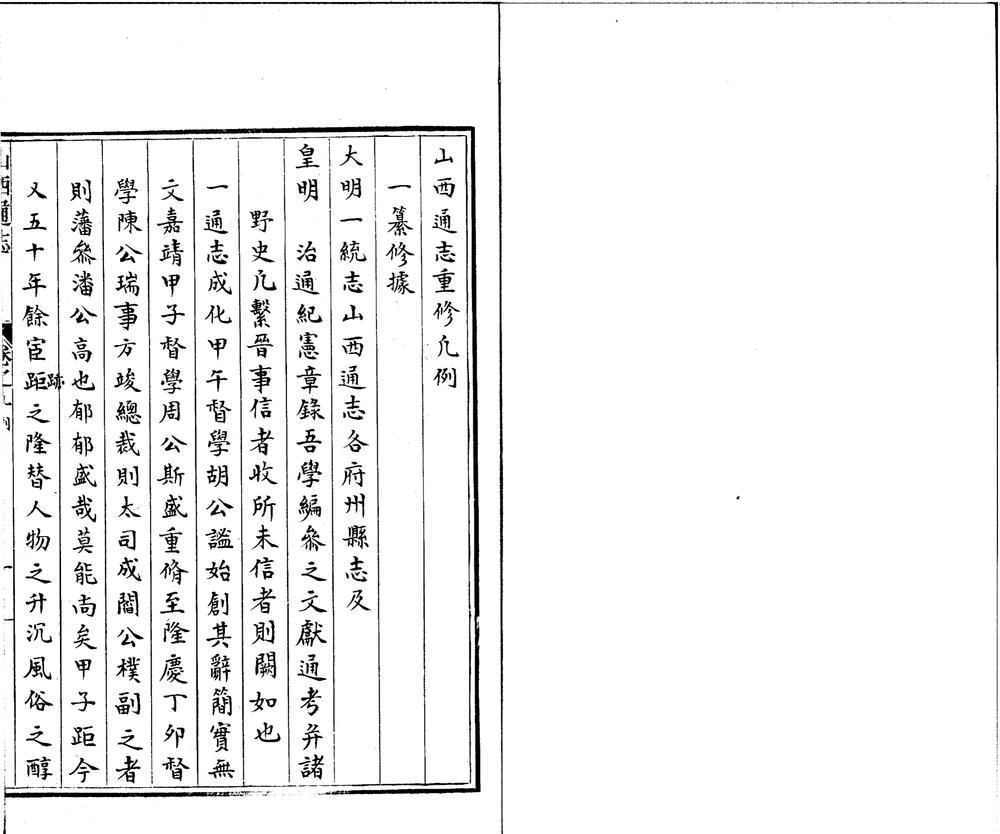 山西通志重修凡例
一纂修據
大明一統志山西通志各府州縣志及
皇明　治通紀憲章錄吾學編叅之文獻通考弁諸
野史凡繫晉事信者收所未信者則闕如也
一通志成化甲午督學胡公謐始創其辭簡實無
文嘉靖甲子督學周公斯盛重脩至隆慶丁卯督
學陳公瑞事方竣總裁則太司成閻公樸副之者
則藩叅潘公高也郁郁盛哉莫能尚矣甲子距今
又五十年餘宦距跡之隆替人物之升沉風俗之醇
山西通志